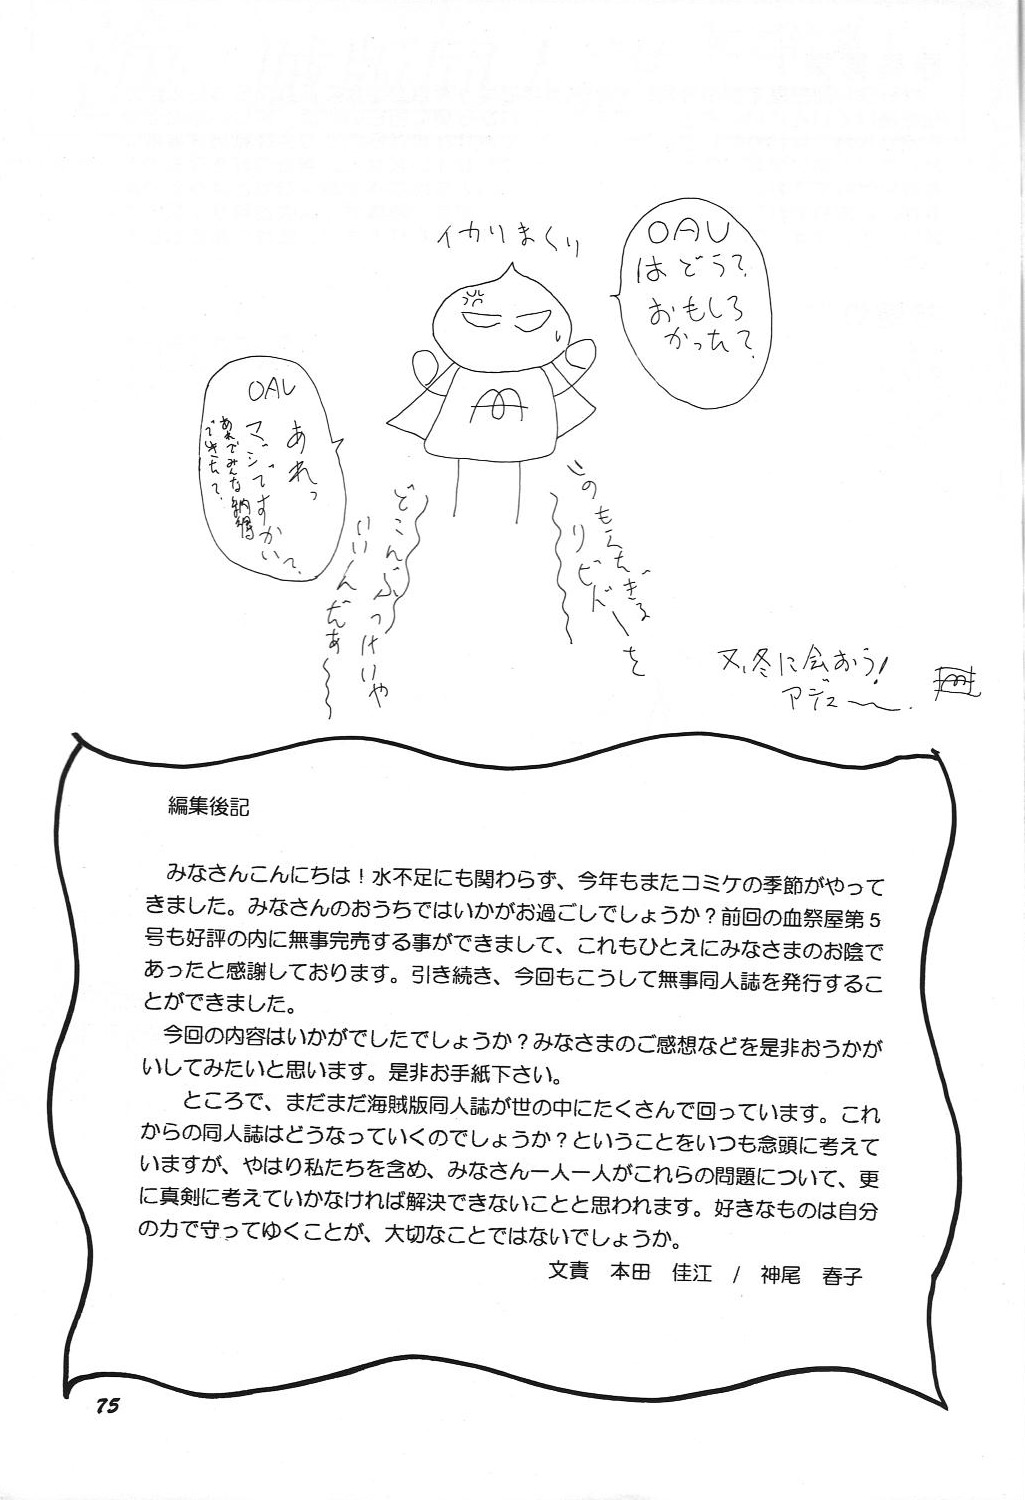 イカりまくり
OAU
はどう?
おもしろ
かった?
OAU
あれっ
マジですかい?
あれでみんな納得
できたって?
このもえたぎる
リビドーを
どこんぶつけいや
いいんだぁ〜〜
又、冬に会おう!
アデュー〜.
編集後記
みなさんこんにちは！水不足にも関わらず、今年もまたコミケの季節がやって
きました。みなさんのおうちではいかがお過ごしでしょうか？前回の血祭屋第５
号も好評の内に無事完売する事ができまして、これもひとえにみなさまのお陰で
あったと感謝しております。引き続き、今回もこうして無事同人誌を発行するこ
とができました。
今回の内容はいかがでしたでしょうか？みなさまのご感想などを是非おうかが
いしてみたいと思います。是非お手紙下さい。
ところで、まだまだ海賊版同人誌が世の中にたくさんで回っています。これ
からの同人誌はどうなっていくのでしょうか？ということをいつも念頭に考えて
いますが、やはり私たちを含め、みなさん一人一人がこれらの問題について、更
に真剣に考えていかなければ解決できないことと思われます。好きなものは自分
の力で守ってゆくことが、大切なことではないでしょうか。
文責　本田　佳江　/　神尾　春子
75